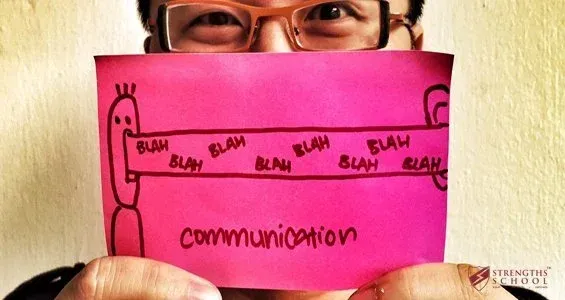 BLAH BLAH BLAH
BLAH BLAH BLAH BLAH BLAH
communication
STRENGTHS
SCHOOL